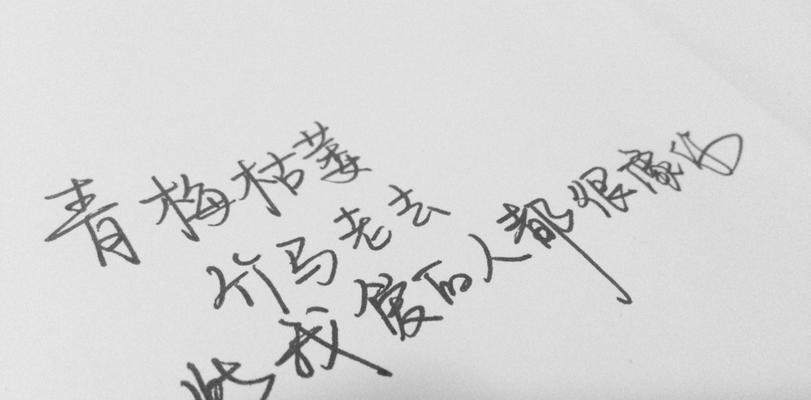 青梅枯萎
竹马老去
此我爱的人都很像你